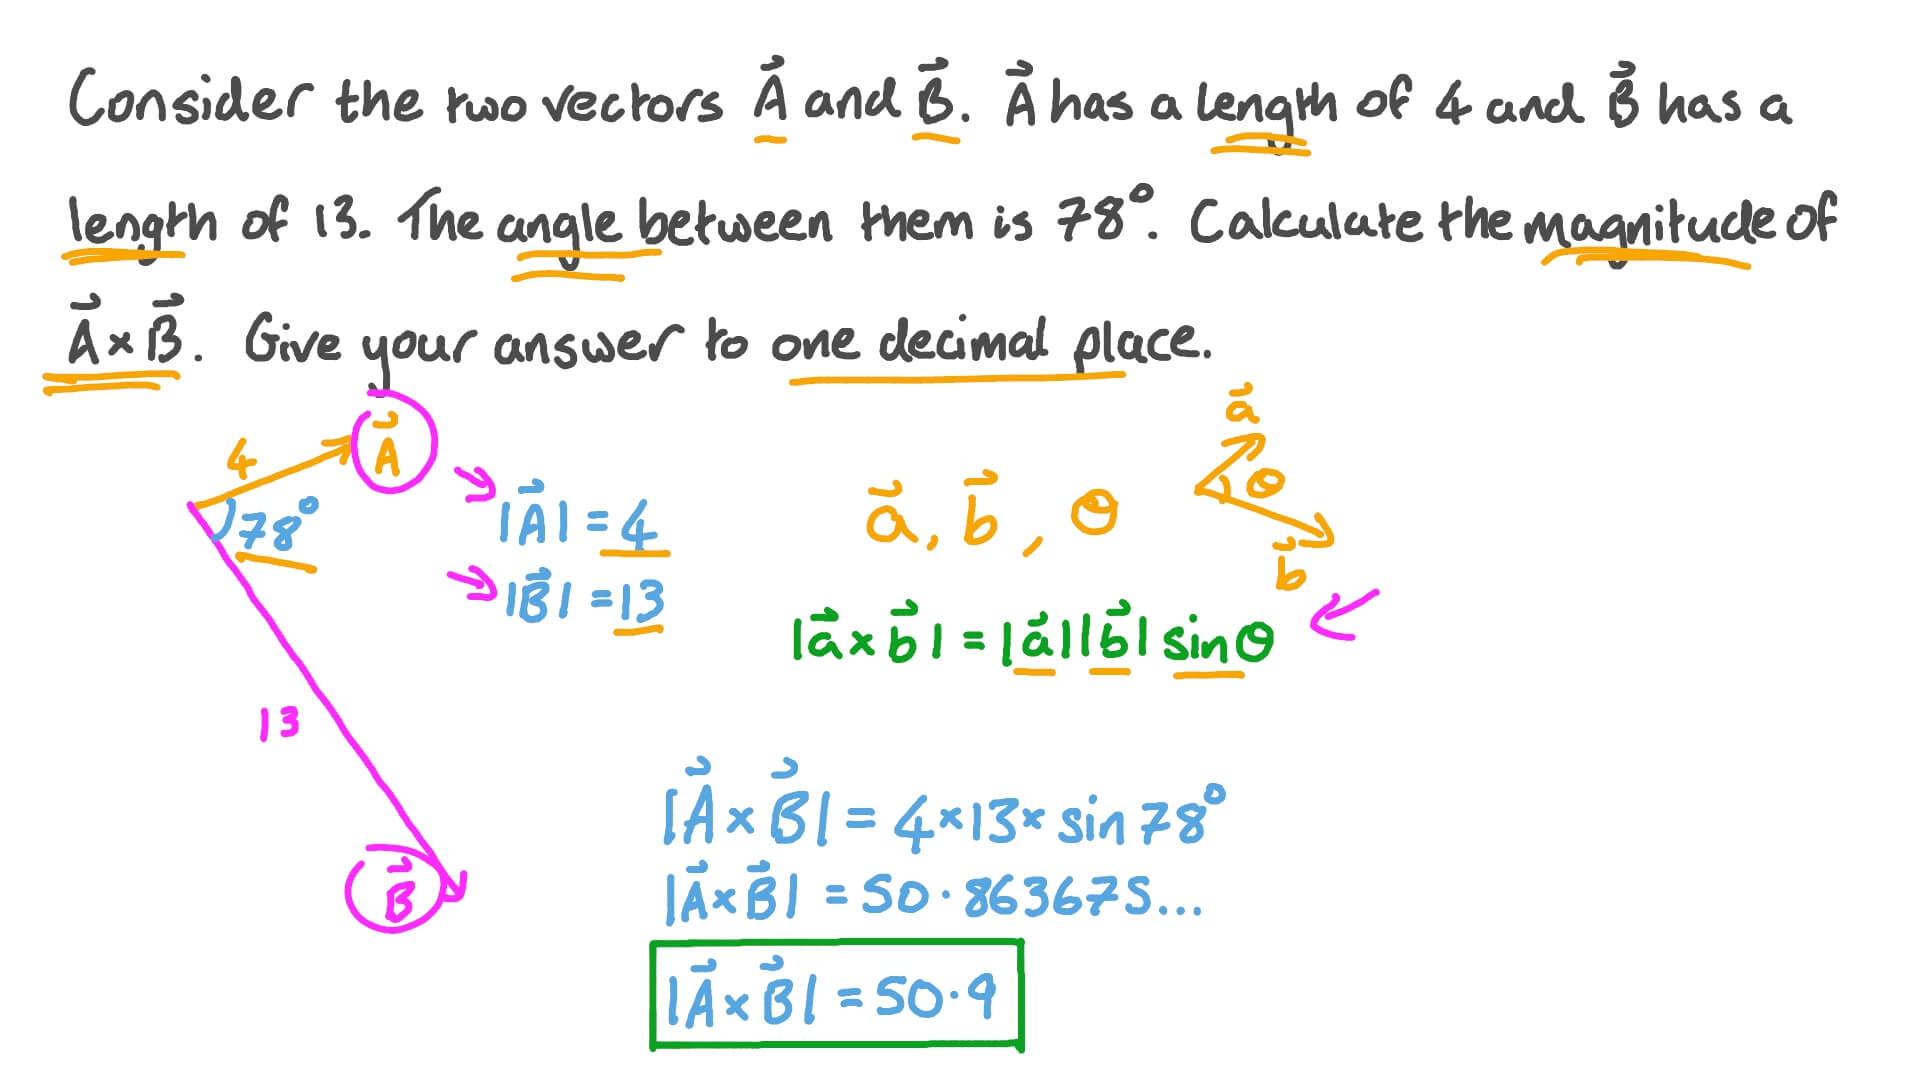 Consider the two vectors A⃗ and B⃗. A⃗ has a length of 4 and B⃗ has a
length of 13. The angle between them is 78°. Calculate the magnitude of
A⃗ × B⃗. Give your answer to one decimal place.
4
A⃗
78°
13
B⃗
|A⃗| = 4
|B⃗| = 13
a⃗, b⃗, θ
a⃗
θ
b⃗
|a⃗ × b⃗| = |a⃗||b⃗| sin θ
|A⃗ × B⃗| = 4 × 13 × sin 78°
|A⃗ × B⃗| = 50·863675...
|A⃗ × B⃗| = 50·9